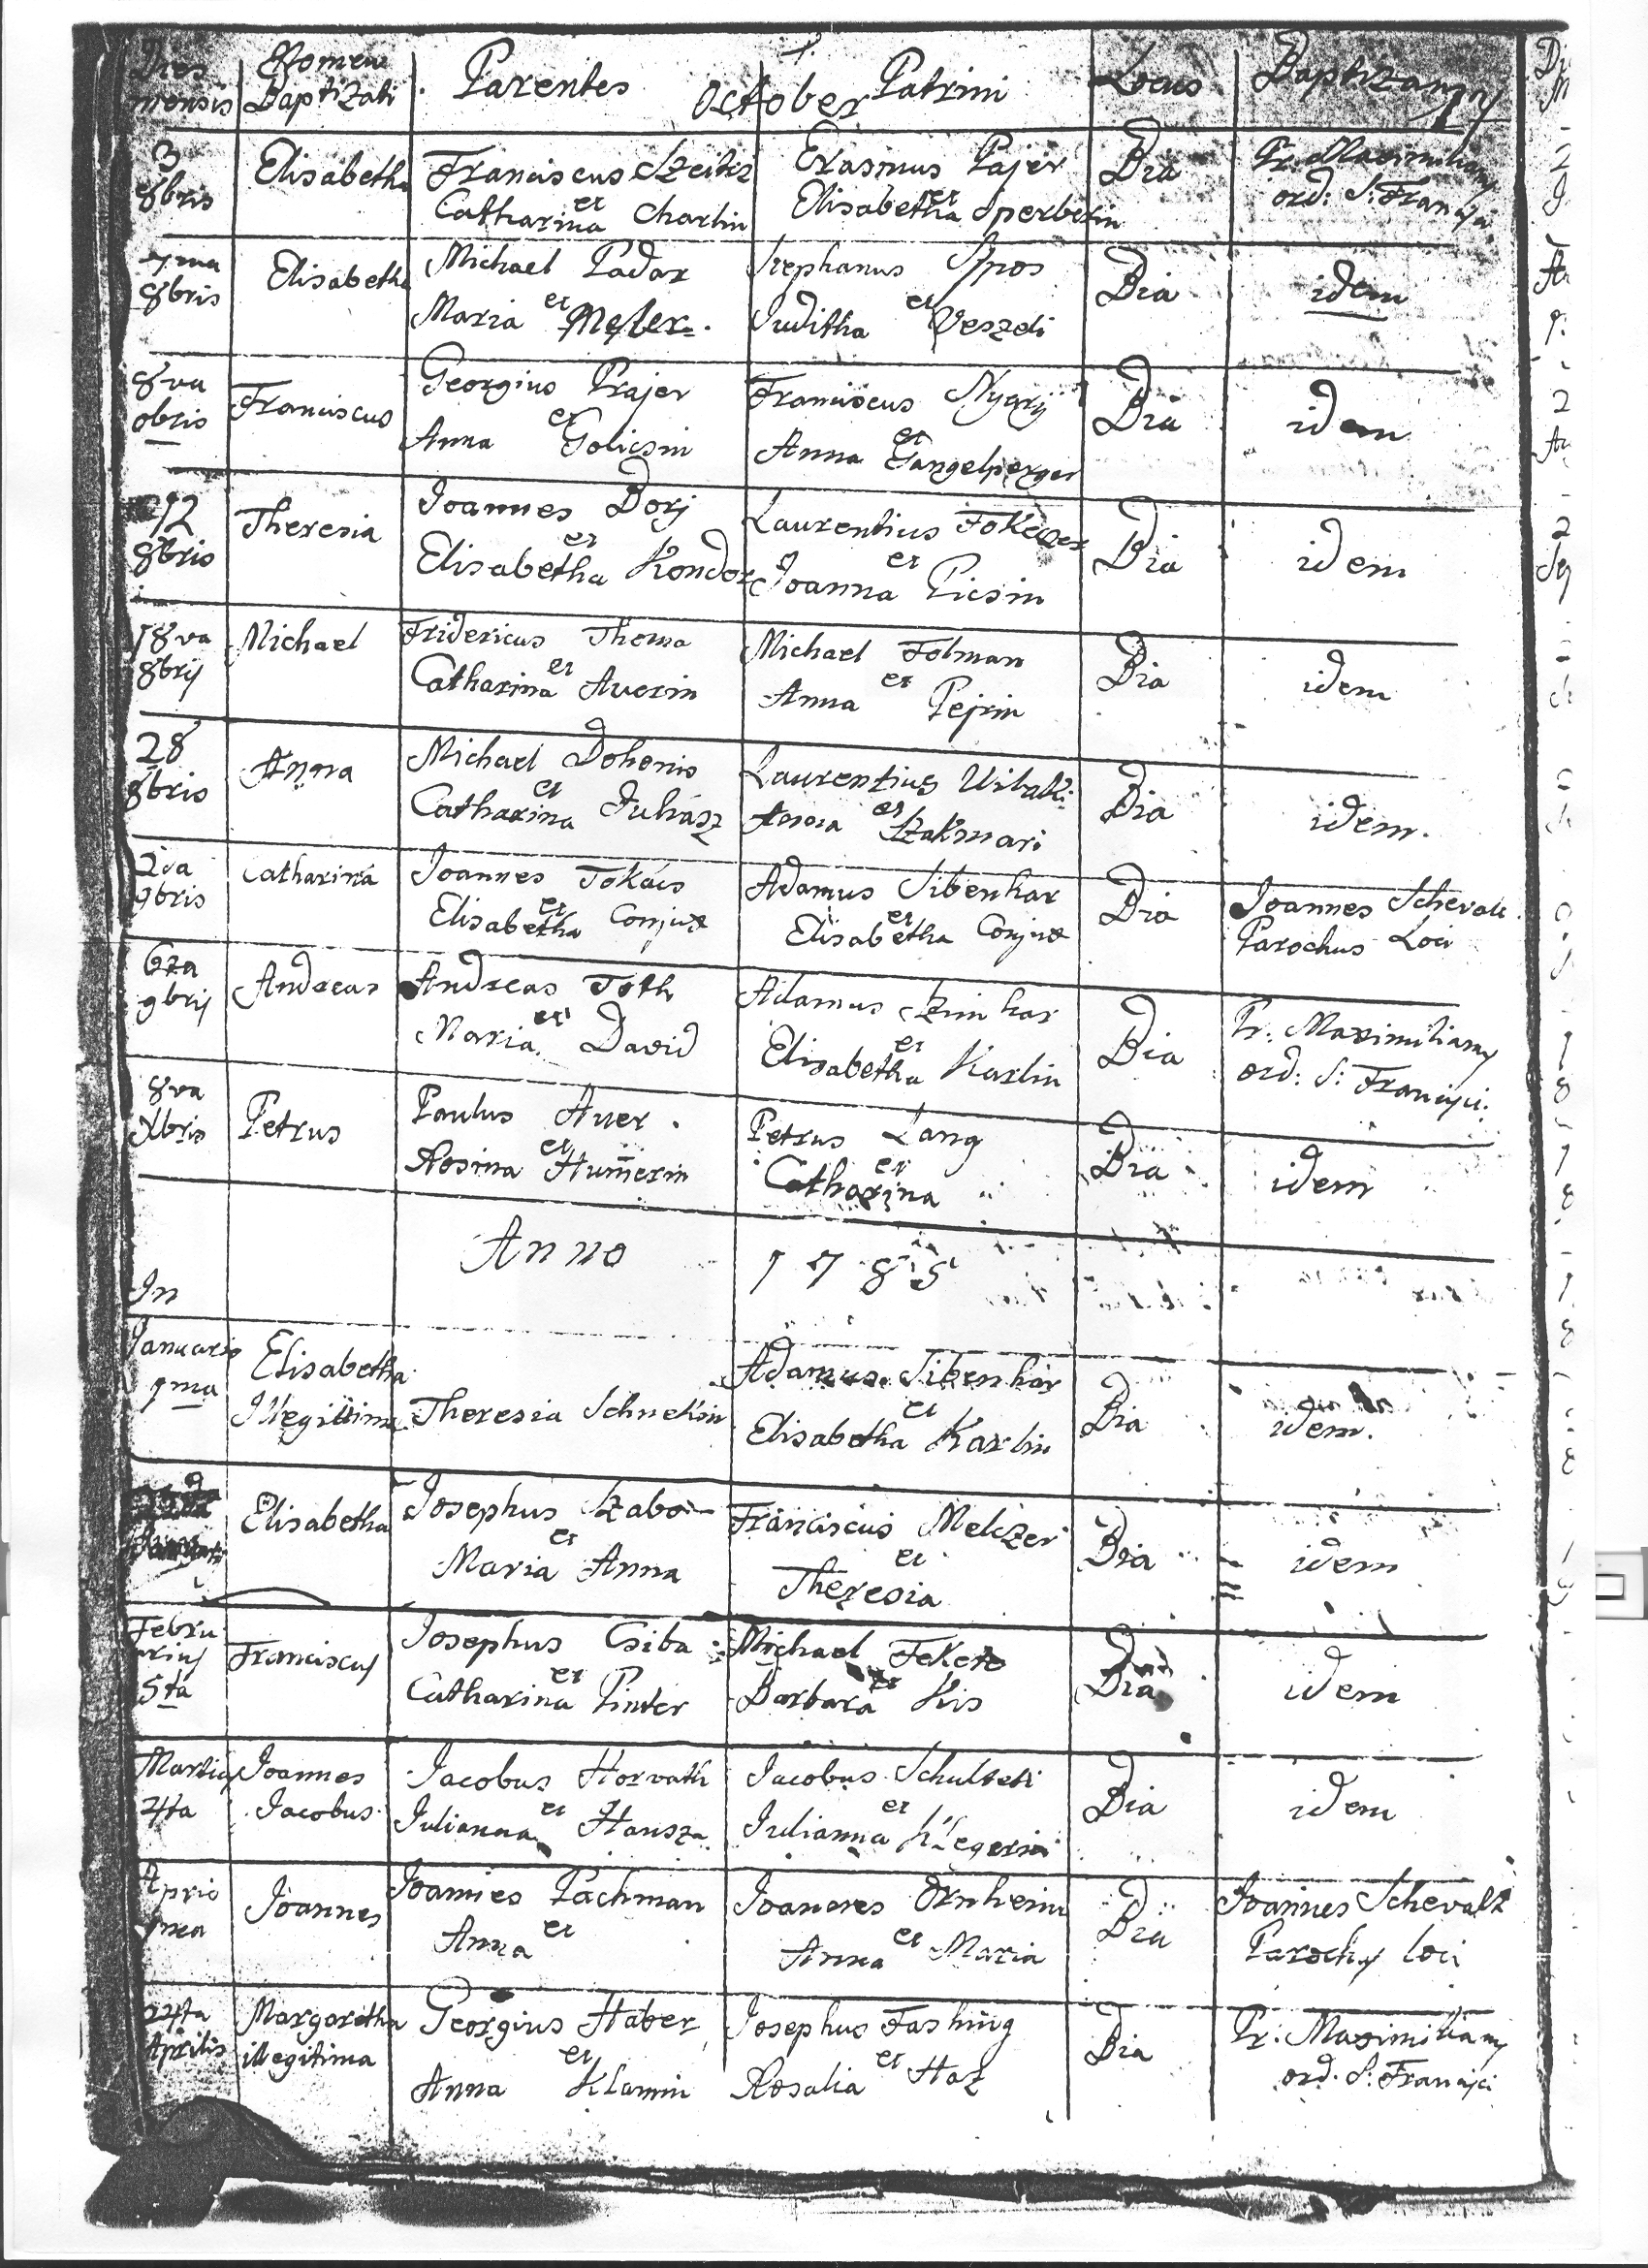 Dies Nomen Parentes Patrini Locus Baptizans
mensis Baptizati October
3 Elisabetha Franciscus Szeitz Erasmus Pajer Dia Pr. Maximilianus
8bris et et ord: S: Francisci
Catharina Charlin Elisabetha Sperbefin
7ma Elisabetha Michael Padar Stephanus Ipos Dia idem
8bris et et
Maria Juditha Veszeli
8va Franciscus Georgius Prajer Franciscus Nyarij Dia idem
8bris et et
Anna Golicsin Anna Gangelperger
12 Theresia Joannes Dorj Laurentius Dia idem
8bris et et
Elisabetha Kondor Joanna Picsin
18va Michael Fridericus Thoma Michael Folman Dia idem
8brij et et
Catharina Auerin Anna Pejrin
28 Anna Michael Dohonis Laurentius Dia idem.
8bris et et
Catharina Juhász Anna Szakmari
2da Catharina Joannes Tokács Adamus Sibenhar Dia Joannes Schevalt
9bris et et Parochus Loci
Elisabetha Conjux Elisabetha Conjux
6ta Andreas Andreas Toth Adamus Szinhar Dia Pr: Maximilianus
9brij et et ord: S: Francisci.
Maria David Elisabetha Karlin
8va Petrus Paulus Auer. Petrus Lang Dia idem
Xbris et et
Rosina Hum̅erin Catharina
Anno 1785
In
Januario Elisabetha Adamus Sibenhár Dia idem.
1ma Illegittima Theresia Schnekin et
Elisabetha Karlin
Elisabetha Josephus Szabo Franciscus Melczer Dia idem
et et
Maria Anna Theresia
Febru Franciscus Josephus Csiba Michael Fekete Dia idem
arius et et
5ta Catharina Pinter Barbara Kis
Martius Joannes Jacobus Horvath Jacobus Schulteti Dia idem
4ta Jacobus et et
Julianna Hansza Julianna Klegerin
Aprio Joannes Joannes Pachman Joannes Ornheim Dia Joannes Schevalt
1ma et et Parochus loci
Anna Anna Maria
24ta Margaretha Georgius Haber Josephus Fashing Dia Pr: Maximilianus
Aprilis illegitima et et ord. S: Francisci
Anna Klamin Rosalia Haz